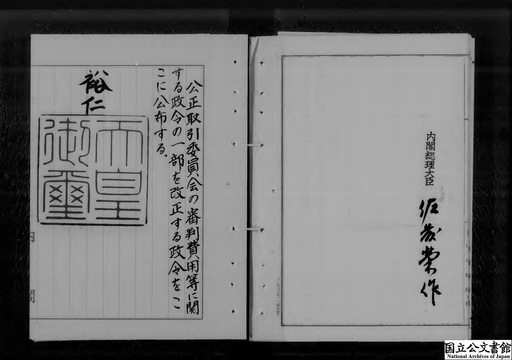 公正取引委員会の審判費用等に関
する政令の一部を改正する政令をこ
こに公布する。
裕仁
天皇
御璽
内閣総理大臣
佐藤榮作
内
閣
国立公文書館
National Archives of Japan